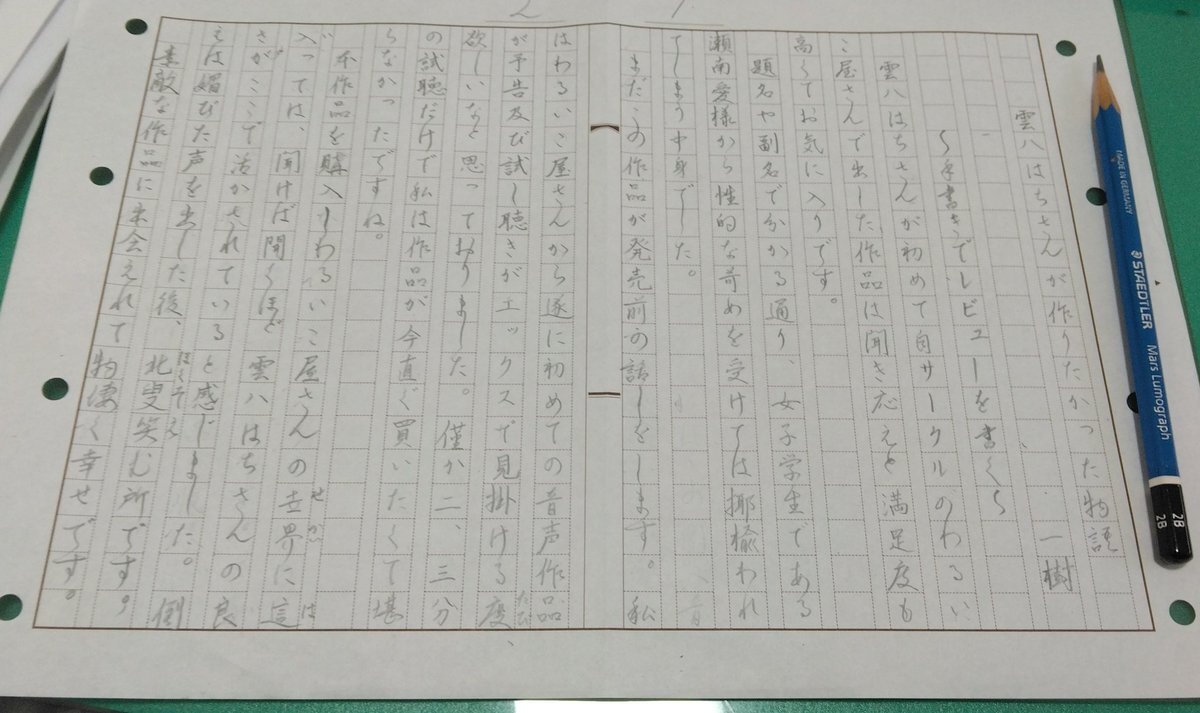 1
雲八はちさんが作りたかった物語
一樹
〜手書きでレビューを書く〜
雲八はちさんが初めて自サークルのわるい
こ屋さんで出した作品は聞き応えと満足度も
高くてお気に入りです。
題名や副名で分かる通り、女子学生である
瀬南愛様から性的な苛めを受けては揶揄われ
てしまう中身でした。
まだこの作品が発売前の話しをします。私
2
はわるいこ屋さんから遂に初めての音声作品
が予告及び試し聴きがエックスで見掛ける度、
たび
欲しいなと思っておりました。僅か二、三分
の試聴だけで私は作品が今直ぐ買いたくて堪
らなかったですね。
本作品を購入しわるいこ屋さんの世界に這
せかい
は
入っては、聞けば聞くほど雲八はちさんの良
さがここで活かされていると感じました。例
えば媚びた声を出した後、北叟笑む所です。
ほくそえ
素敵な作品に出会えれて物凄く幸せです。
MADE IN GERMANY
STAEDTLER
Mars Lumograph
2B
2B